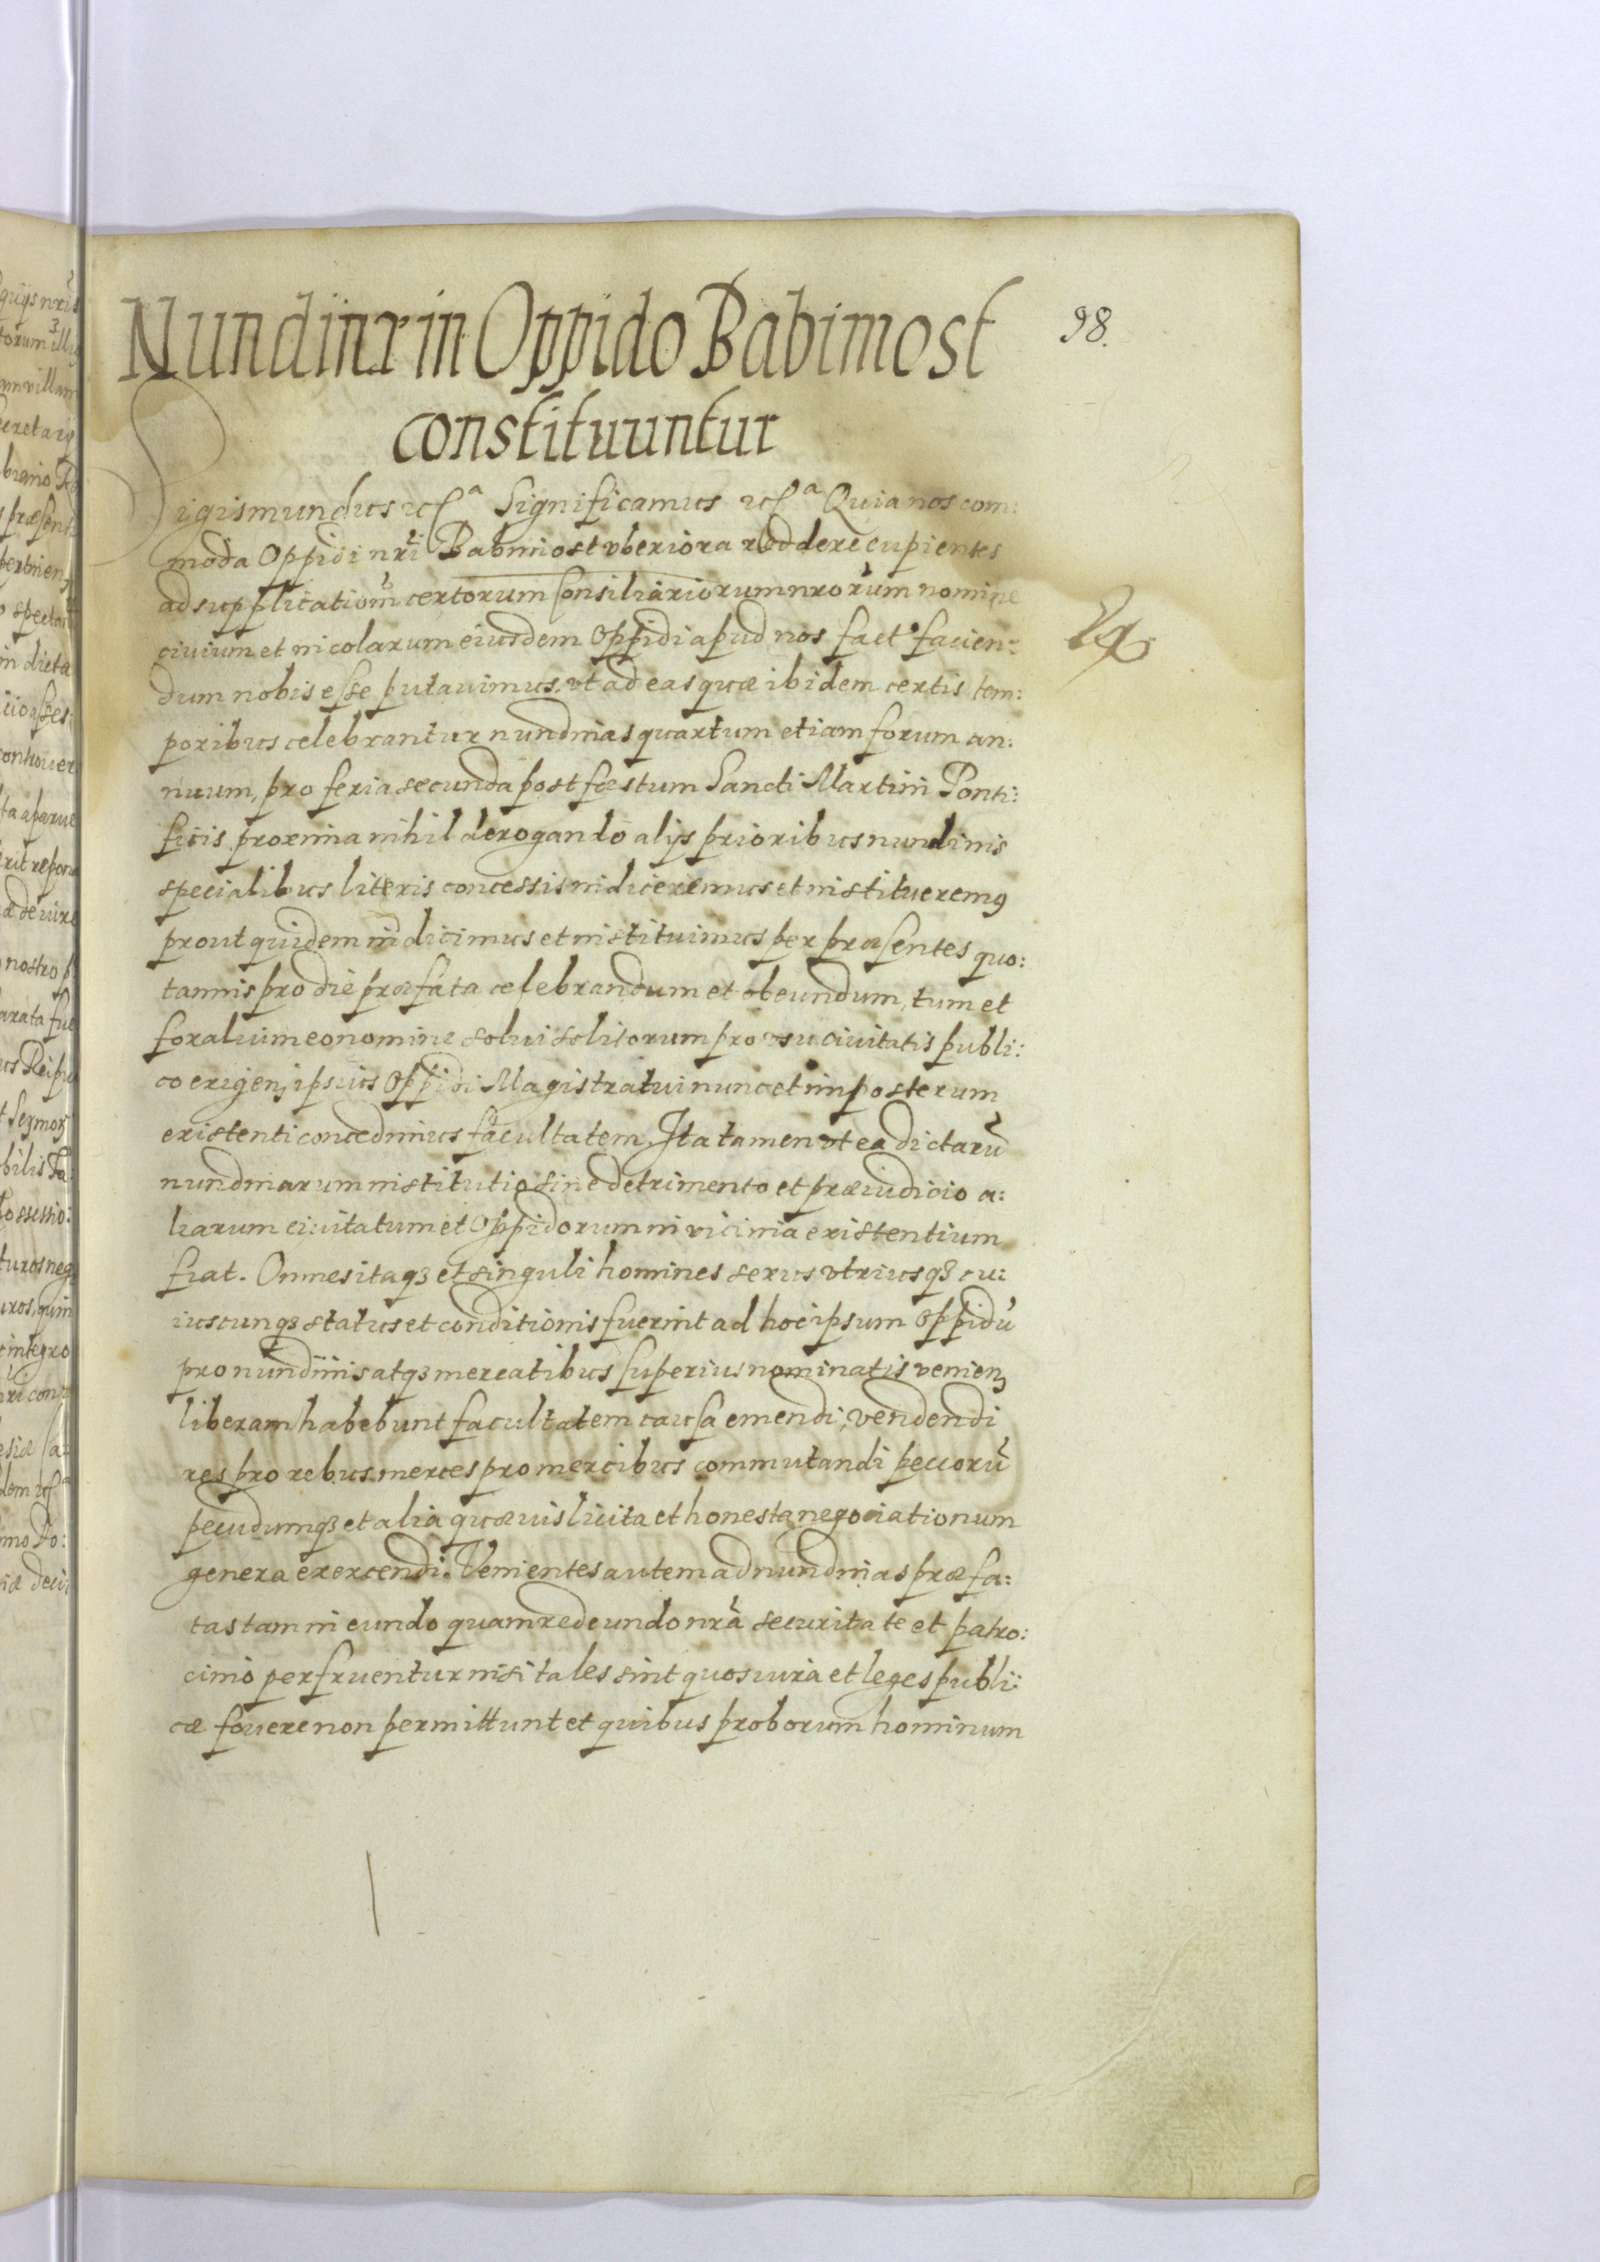 98.
Nundinæ in Oppido Babimost
constituuntur
Sigismundus etc̃ª Significamus etc̃ª Quia nos com:
moda Oppidi nr̃i Babimost vberiora reddere cupientes
ad supplicationem̃ certorum Consiliariorum nrorũm nomine
civium et incolarum eiusdem Oppidi apud nos fact. facien:
dum nobis esse putavimus, vt ad eas quæ ibidem certis tem:
poribus celebrantur nundinas quartum etiam forum an:
nuum, pro feria secunda post festum Sancti Martini Ponti:
ficis proxima nihil derogando alijs prioribus nundinis
specialibus literis concessis indiceremus et institueremꝰ
prout quidem indicimus et instituimus per præsentes quo:
tannis pro die præfata celebrandum et obeundum, tum et
foralium eo nomine solvi solitorum pro vsu civitatis publi:
co exigenꝫ ipsius Oppidi Magistratui nunc et imposterum
existenti concedimus facultatem, Ita tamen vt ea dictarũ
nundinarum institutio sine detrimento et præiudicio a:
liarum civitatum et Oppidorum in vicinia existentium
fiat. Omnes itaqꝫ et singuli homines sexus vtriusqꝫ cu:
iuscunqꝫ status et conditionis fuerint ad hoc ipsum Oppidũ
pro nundinis atqꝫ mercatibus superius nominatis venienꝫ
liberam habebunt facultatem causa emendi, vendendi
res pro rebus merces pro mercibus commutandi pecorũ
pecudumqꝫ et alia quævis licita et honesta negociationum
genera exercendi. Venientes autem ad nundinas præfa:
tas tam in eundo quam redeundo nrã securitate et patro:
cinio perfruentur nisi tales sint quos iura et leges publi:
cæ fovere non permittunt et quibus proborum hominum